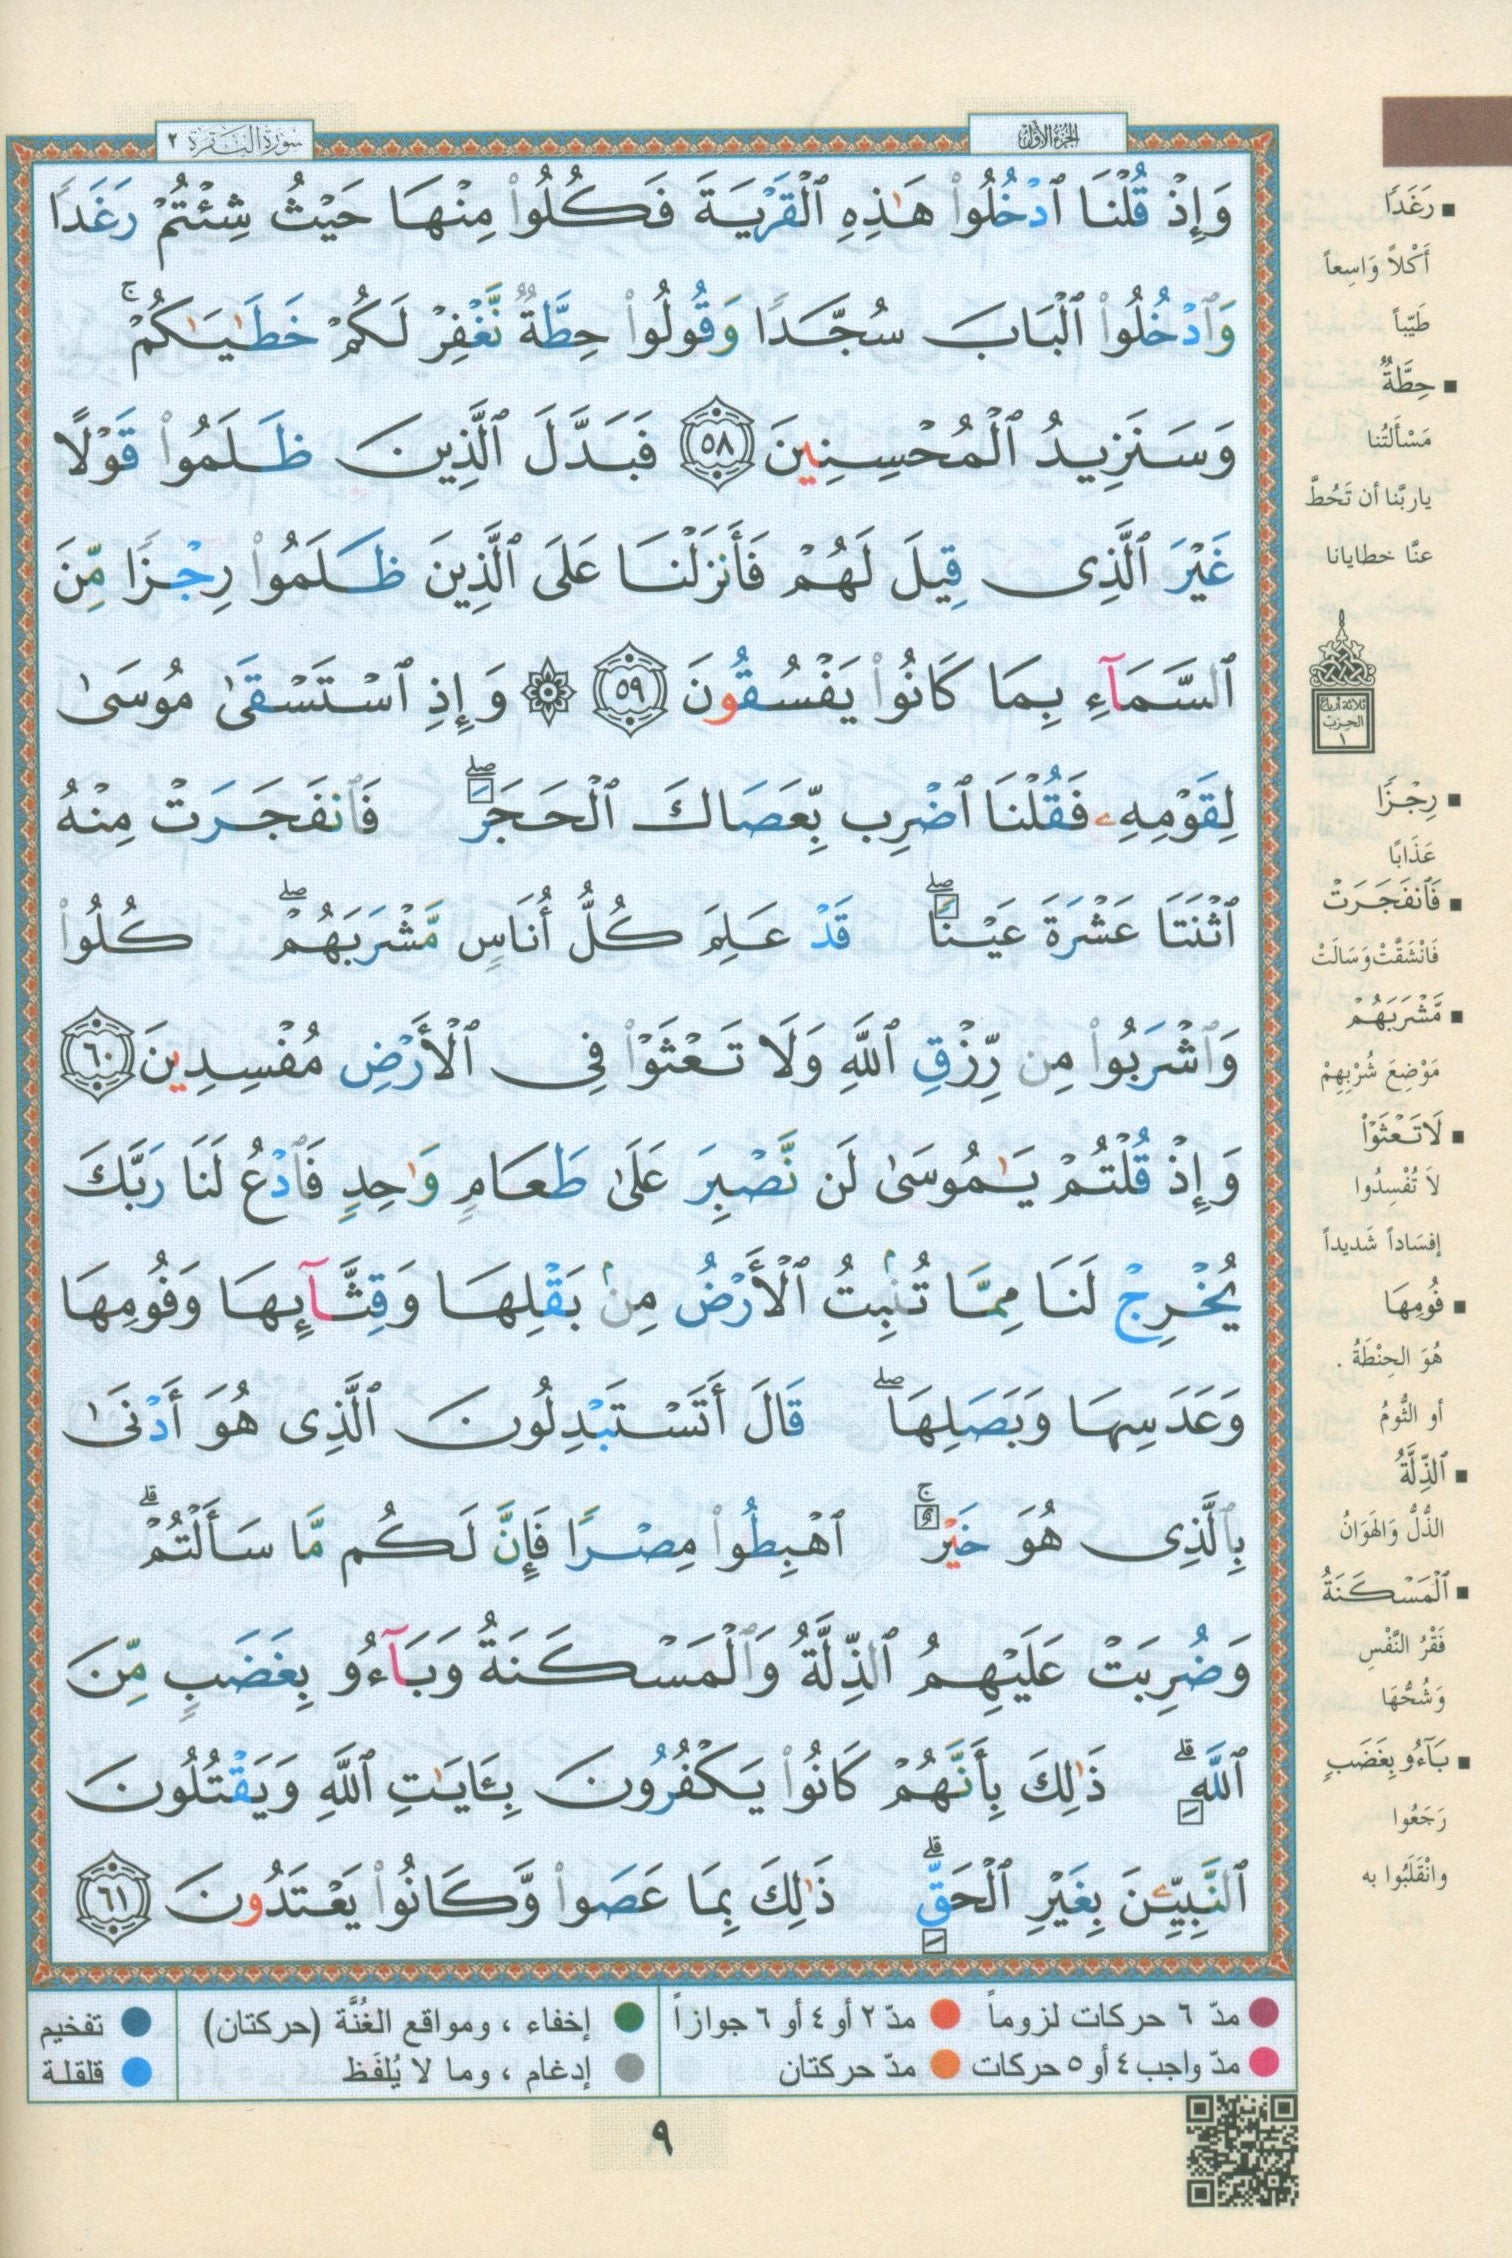 الجزء الأول
سورة البقرة ٢
وَإِذْ قُلْنَا ٱدْخُلُوا۟ هَـٰذِهِ ٱلْقَرْيَةَ فَكُلُوا۟ مِنْهَا حَيْثُ شِئْتُمْ رَغَدًا
وَٱدْخُلُوا۟ ٱلْبَابَ سُجَّدًا وَقُولُوا۟ حِطَّةٌ نَّغْفِرْ لَكُمْ خَطَـٰيَـٰكُمْ ۚ
وَسَنَزِيدُ ٱلْمُحْسِنِينَ ٥٨ فَبَدَّلَ ٱلَّذِينَ ظَلَمُوا۟ قَوْلًا
غَيْرَ ٱلَّذِى قِيلَ لَهُمْ فَأَنزَلْنَا عَلَى ٱلَّذِينَ ظَلَمُوا۟ رِجْزًا مِّنَ
ٱلسَّمَآءِ بِمَا كَانُوا۟ يَفْسُقُونَ ٥٩ ۞ وَإِذِ ٱسْتَسْقَىٰ مُوسَىٰ
لِقَوْمِهِۦ فَقُلْنَا ٱضْرِب بِّعَصَاكَ ٱلْحَجَرَ ۖ فَٱنفَجَرَتْ مِنْهُ
ٱثْنَتَا عَشْرَةَ عَيْنًا ۖ قَدْ عَلِمَ كُلُّ أُنَاسٍ مَّشْرَبَهُمْ ۖ كُلُوا۟
وَٱشْرَبُوا۟ مِن رِّزْقِ ٱللَّهِ وَلَا تَعْثَوْا۟ فِى ٱلْأَرْضِ مُفْسِدِينَ ٦٠
وَإِذْ قُلْتُمْ يَـٰمُوسَىٰ لَن نَّصْبِرَ عَلَىٰ طَعَامٍ وَٰحِدٍ فَٱدْعُ لَنَا رَبَّكَ
يُخْرِجْ لَنَا مِمَّا تُنۢبِتُ ٱلْأَرْضُ مِنۢ بَقْلِهَا وَقِثَّآئِهَا وَفُومِهَا
وَعَدَسِهَا وَبَصَلِهَا ۖ قَالَ أَتَسْتَبْدِلُونَ ٱلَّذِى هُوَ أَدْنَىٰ
بِٱلَّذِى هُوَ خَيْرٌ ۚ ٱهْبِطُوا۟ مِصْرًا فَإِنَّ لَكُم مَّا سَأَلْتُمْ ۗ
وَضُرِبَتْ عَلَيْهِمُ ٱلذِّلَّةُ وَٱلْمَسْكَنَةُ وَبَآءُو بِغَضَبٍ مِّنَ
ٱللَّهِ ۗ ذَٰلِكَ بِأَنَّهُمْ كَانُوا۟ يَكْفُرُونَ بِـَٔايَـٰتِ ٱللَّهِ وَيَقْتُلُونَ
ٱلنَّبِيِّـۧنَ بِغَيْرِ ٱلْحَقِّ ۗ ذَٰلِكَ بِمَا عَصَوا۟ وَّكَانُوا۟ يَعْتَدُونَ ٦١
رَغَدًا
أَكْلاً وَاسِعاً
طَيِّباً
حِطَّةٌ
مَسْأَلَتُنا
ياربَّنا أن تَحُطَّ
عنَّا خطايانا
ثلاثة أرباع
الحزب
١
رِجْزًا
عَذَابًا
فَٱنفَجَرَتْ
فَانْشَقَّتْ وَسَالَتْ
مَّشْرَبَهُمْ
مَوْضِعَ شُرْبِهِمْ
لَا تَعْثَوْا۟
لَا تُفْسِدُوا
إفسَاداً شَديداً
فُومِهَا
هُوَ الحِنْطَةُ .
أو الثُّومُ
ٱلذِّلَّةُ
الذُّلُّ وَالهَوَانُ
ٱلْمَسْكَنَةُ
فَقْرُ النَّفْسِ
وَشُحُّهَا
بَآءُو بِغَضَبٍ
رَجَعُوا
وانْقَلَبُوا به
مدّ ٦ حركات لزوماً
مدّ ٢ أو ٤ أو ٦ جوازاً
إخفاء ، ومواقع الغُنَّة (حركتان)
تفخيم
مدّ واجب ٤ أو ٥ حركات
مدّ حركتان
إدغام ، وما لا يُلفَظ
قلقلة
٩